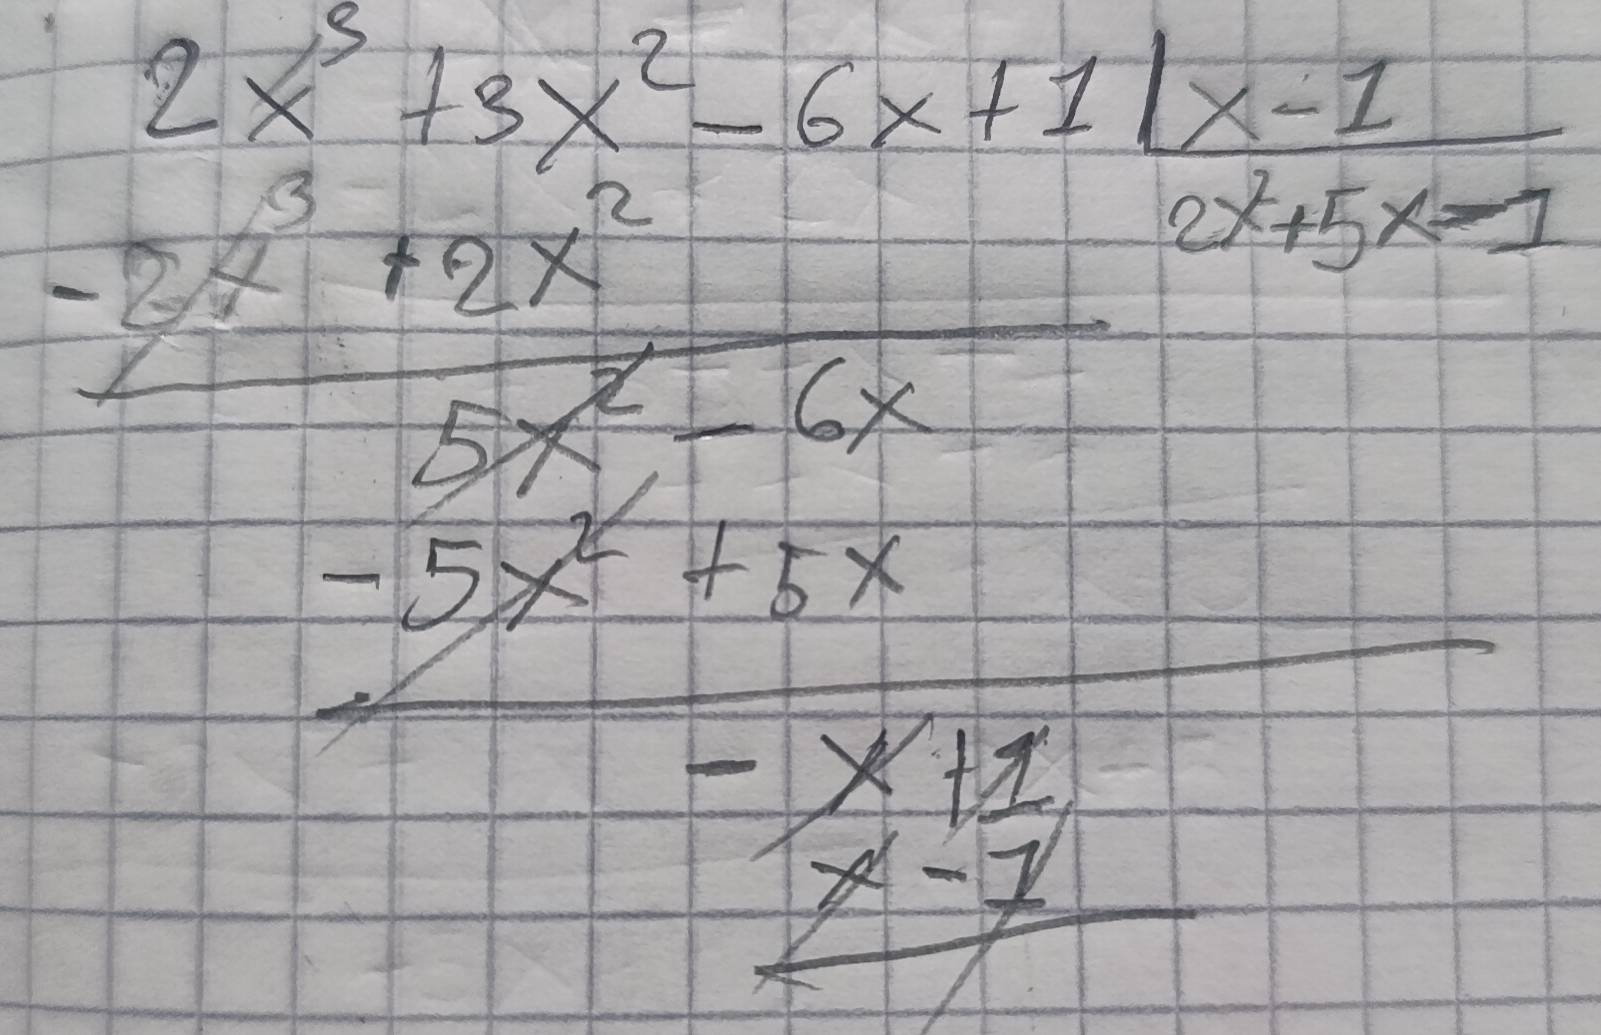 2x³ + 3x² - 6x + 1 | x - 1
- 2x³ + 2x²
2x² + 5x - 1
5x² - 6x
- 5x² + 5x
- x + 1
x - 1